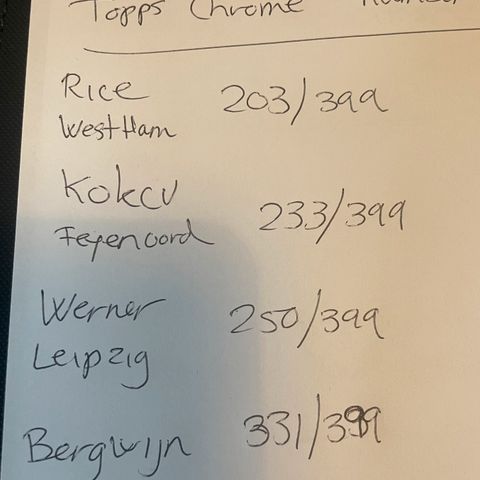 Topps Chrome
Rice 203/399
West Ham
Kokcu 233/399
Feyenoord
Werner 250/399
Leipzig
Bergwijn 331/399